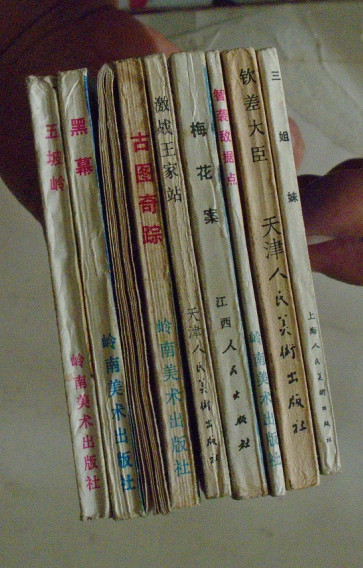 五坡岭
岭南美术出版社
黑幕
岭南美术出版社
古图奇踪
岭南美术出版社
激战王家站
天津人民美術出版社
梅花案
江西人民出版社
智袭敌据点
岭南美术出版社
钦差大臣
天津人民美術出版社
三姐妹
上海人民美術出版社